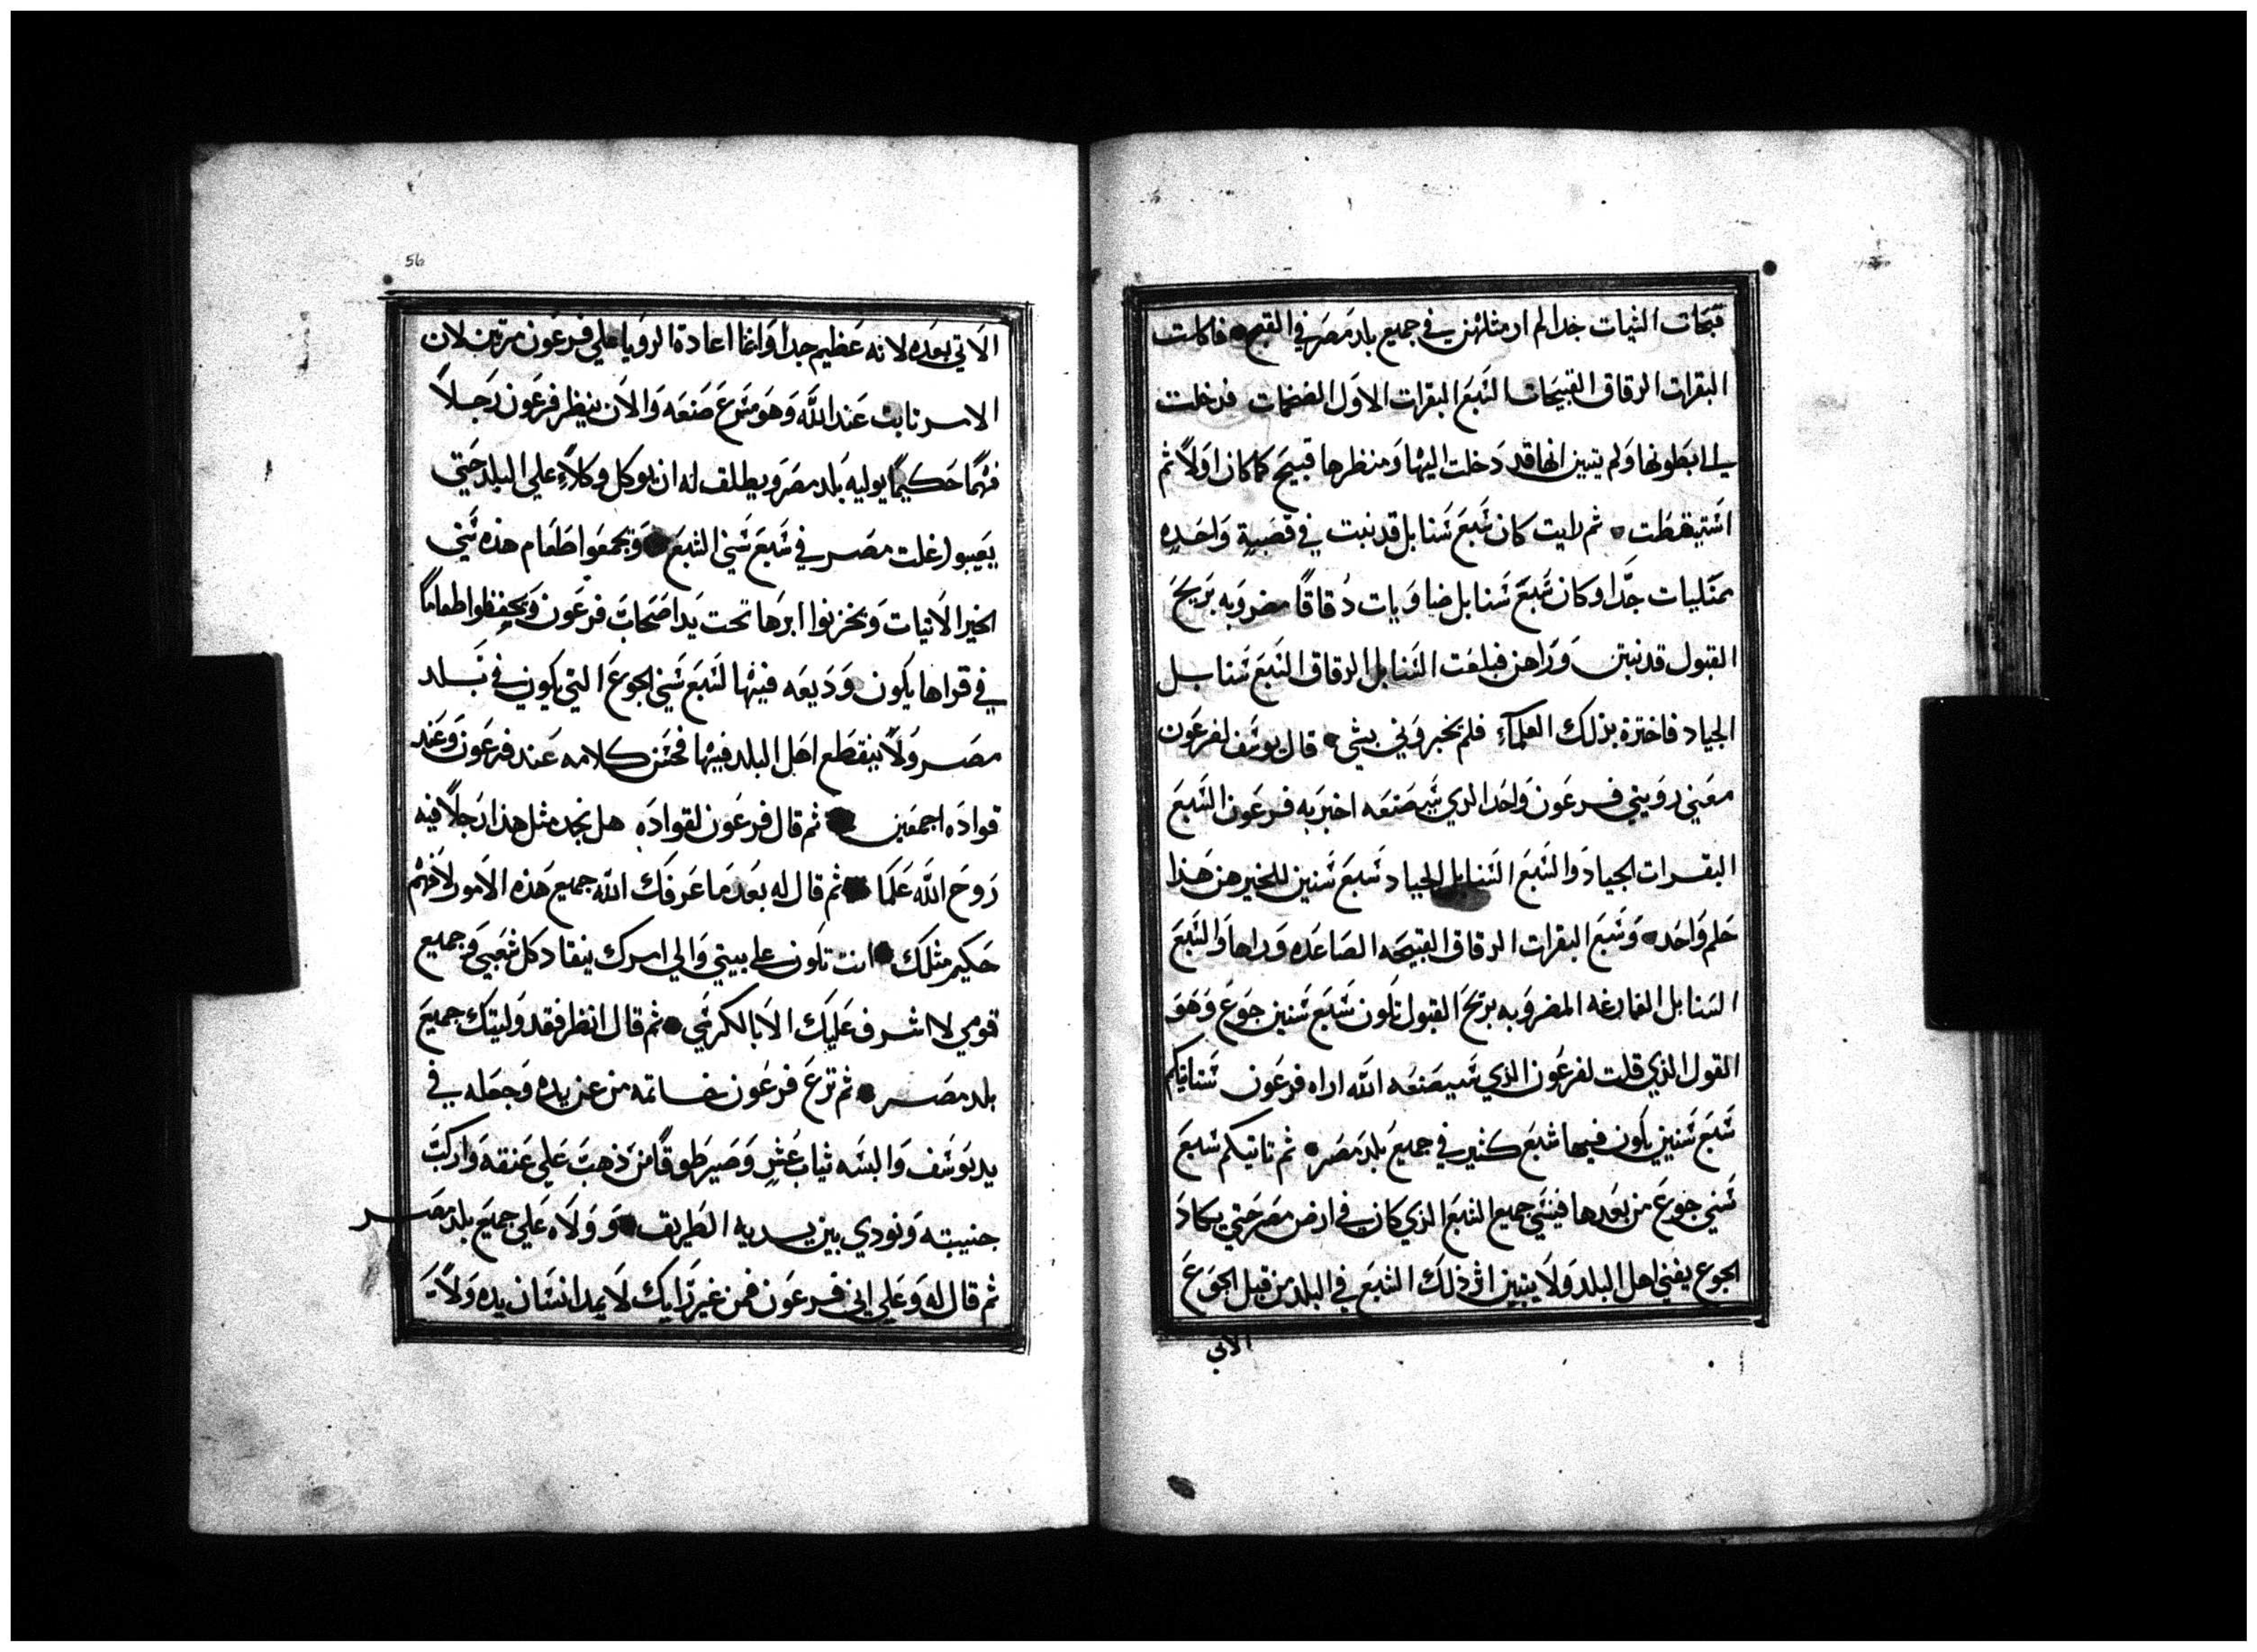 قبحات الشيات جدا لم ار مثلهن في جميع بلد مصر في القبح فاكلت
البقرات الرقاق القبيحات السَبعَ البقرات الاوَل الضخمات فدخلت
الي ابطونها وَلم يتبين انها قد دَخلت اليها وَمنظرها قبيحَ كما كان اوَلاً ثم
استيقظت ثم رايت كان سَبعَ سَنابل قد نبتت في قصَبةٍ وَاحَدهِ
ممَتليات جدَا وكان سَبعَ سَنابل ضاوَيات دُقاقاً مضروَبه بريحَ
القبول قد نبتن وَرَاهن فبلعَت السَنابل الرقاق السَبعَ سَنابل
الجياد فاخبرة بذلك العلمآء فلم يخبروَني بشي قال يوسَف لفرعَون
معَني رويتي فرعَون وَاحَدا الذي سَيصَنعَه اخبرَبه فرعَون السَبعَ
البقرات الجيادَ والسَبعَ السَنابل الجياد سَبعَ سَنين للخير هن هَذا
حَلم وَاحَد وَسَبعَ البقرات الرقاق القبيحَه الصَاعَده وَراهاَ وَالسَبعَ
السَنابل الفارغه المضروَبه بريحَ القبول تكون سَبعَ سَنين جوَعَ وَهوَ
القول الذي قلت لفرعَون الذي سَيصَنعَه الله اراه فرعَون سَتاتيكم
سَبعَ سَنين يكون فيها شبَع كثير في جميعَ بلد مصَر ثم تاتيكم سَبعَ
سَني جوَعَ من بعَدها فينسَي جميع الشبَع الذي كان في ارض مصَر حَتي يكادَ
الجوع يفني اهل البلد وَلاَ يتبين اثر ذلك الشبَعَ في البلد من قبل الجوَعَ
الاتي
56
الاَتي بعَده لانه عَظيم جدا وَانما اعادة الرويا علي فرعَون مرَتين لان
الامر ثابت عَند الله وَهوَ مسَرعَ صَنعَه وَالاَن ينظر فرعَون رَجلاً
فهمًا حَكيمًا يوليه بَلد مصَر وَيطلف له ان يوكل وكلاَءِ علي البلد حَتي
يعَيبوا غلت مصَر في سَبعَ سَني الشبعَ وَيجمعَوا طَعَام هذه سَني
الخير الاَتيات وَيخزنوا ابرَها تحت يَد اصَحَابَ فرعَون وَيحَفظوا طعاماً
في قراها يكون وَدَيعَه فيها لسَبعَ سَني الجوعَ التي يكون في بَلد
مصَر وَلاَ ينقطَع اهَل البلد فيها فحَسَن كلامه عَند فرعَون وَعَند
قوادَه اجمعَين ثم قال فرعَون لقوادَه هل نجد مثل هذا رَجلاً فيه
رَوحَ الله عَلمَا ثم قال له بعَد مَا عَرفَك الله جميعَ هَذه الاَمور لاَ فهْم
حَكيم مثلَك انت تكون علي بيتي وَالي امرك ينقادَ كل شعَبي وَجميع
قومي لا اشرف عَليَك الاَ بالكرسَي ثم قال انظر فقد وَليتك جميعَ
بلد مصَر ثم نزعَ فرعَون خاتمه من عن يده وَجعَله في
يد يَوسَف وَالبسَه ثياب عُشرٍ وَصَير طوقاً من ذَهبَ عَلي عَنقه وَاركبَ
جنيبته وَنودي بين يديه الطَريق وَوَلاَه عَلي جميعَ بلد مصَر
ثم قال له وَعَلي اني فرعَون فمن غير رَايك لاَ يمد انسَان يده وَلاَ